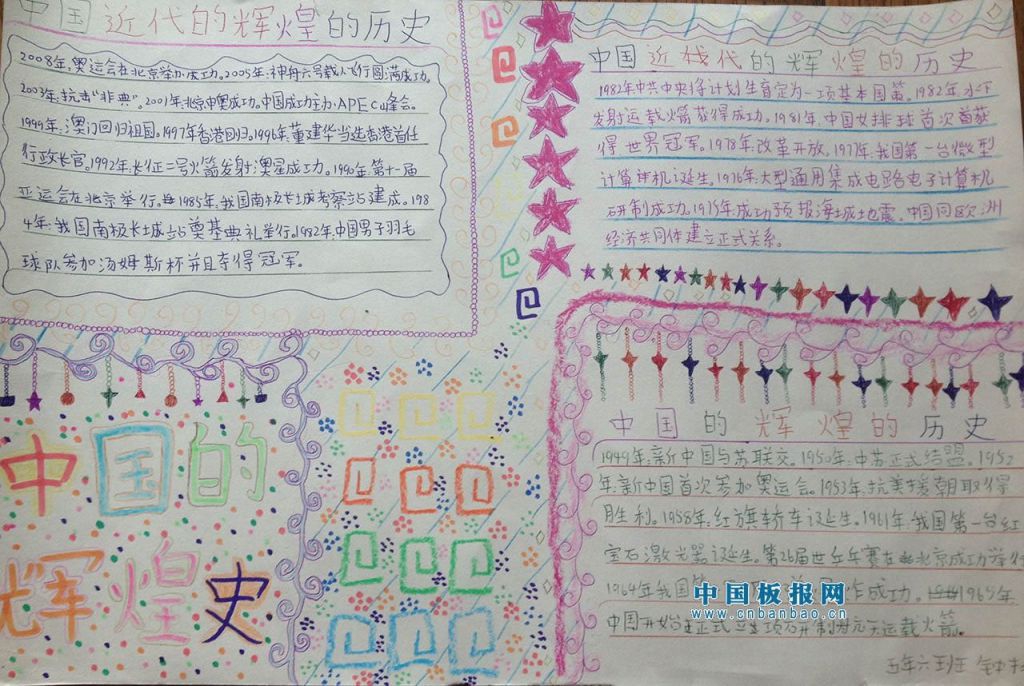 中国近代的辉煌的历史
2008年:奥运会在北京举办成功。2005年:神舟六号载人飞行圆满成功。
2003年:抗击"非典"。2001年:北京申奥成功。中国成功主办APEC峰会。
1999年:澳门回归祖国。1997年香港回归。1996年董建华当选香港首任
行政长官。1992年:长征二号火箭发射:澳星成功。1990年:第十一届
亚运会在北京举行。1985年:我国南极长城考察站建成。198
4年:我国南极长城站奠基典礼举行。1982年:中国男子羽毛
球队参加汤姆斯杯并且夺得冠军。
中国近代的辉煌的历史
1982年中共中央将计划生育定为一项基本国策。1982年:水下
发射运载火箭获得成功。1981年:中国女排球首次首获
得世界冠军。1978年:改革开放。1977年:我国第一台微型
计算机诞生。1976年:大型通用集成电路电子计算机
研制成功。1975年成功预报海城地震。中国同欧洲
经济共同体建立正式关系。
中国的辉煌的历史
1949年:新中国与苏联交。1950年:中苏正式结盟。1952
年:新中国首次参加奥运会。1953年:抗美援朝取得
胜利。1958年:红旗轿车诞生。1961年:我国第一台红
宝石激光器诞生。第26届世乒乓赛在北京成功举行
1964年我国第 作成功。1965年
中国开始正式 研制 运载火箭。
五年六班 钟
中国的
辉煌史
中国板报网
www.cnbanbao.cn